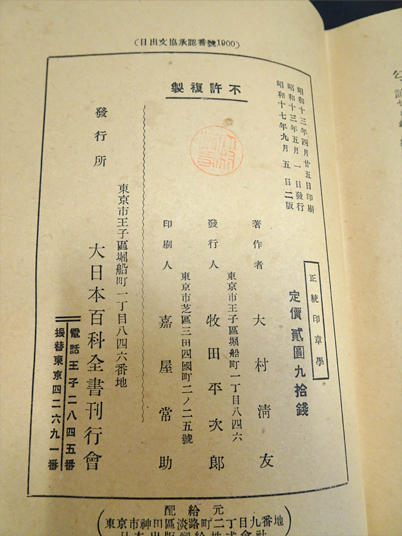 (日出文協承認番號1900)
不許複製
昭和十三年四月廿五日印刷
昭和十三年五月一日發行
昭和十七年九月五日二版
正統印章學
定價貳圓九拾錢
著作者 大村清友
東京市王子區堀船町一丁目八四六
發行人 牧田平次郎
東京市芝區三田四國町二ノ二五號
印刷人 嘉屋常助
東京市王子區堀船町一丁目八四六番地
發行所 大日本百科全書刊行會
電話王子二八四五番
振替東京四二六九一番
配給元
東京市神田區淡路町二丁目九番地